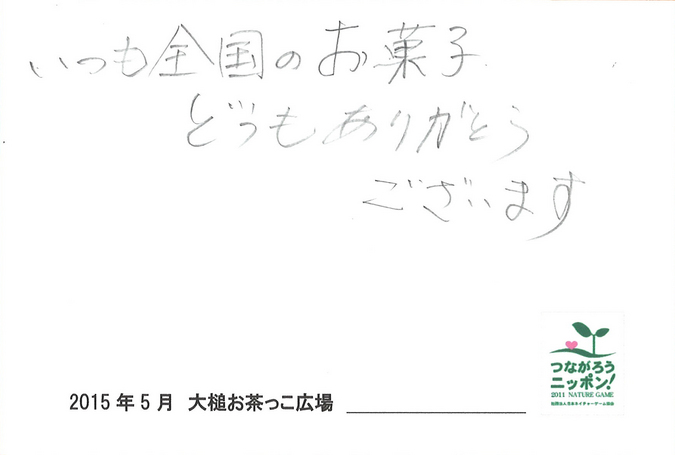 いつも全国のお菓子
どうもありがとう
ございます
2015年5月 大槌お茶っこ広場
つながろう
ニッポン!
2011 NATURE GAME
社団法人日本ネイチャーゲーム協会